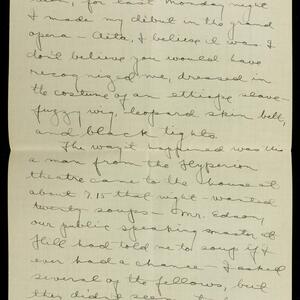 for last Monday night
I made my debut in the grand
opera - Aida, I believe it was. I
don't believe you would have
recognized me, dressed in
the costume of an ethiope slave -
fuzzy wig, leopard skin belt,
and black tights.
The way it happened was this
a man from the Hyperion
theatre came to the house at
about 7.15 that night - wanted
twenty supes - Mr. Edson,
our public speaking master of
Hill had told me to supe if I
ever had a chance - I asked
several of the fellows, but
they didn't seem